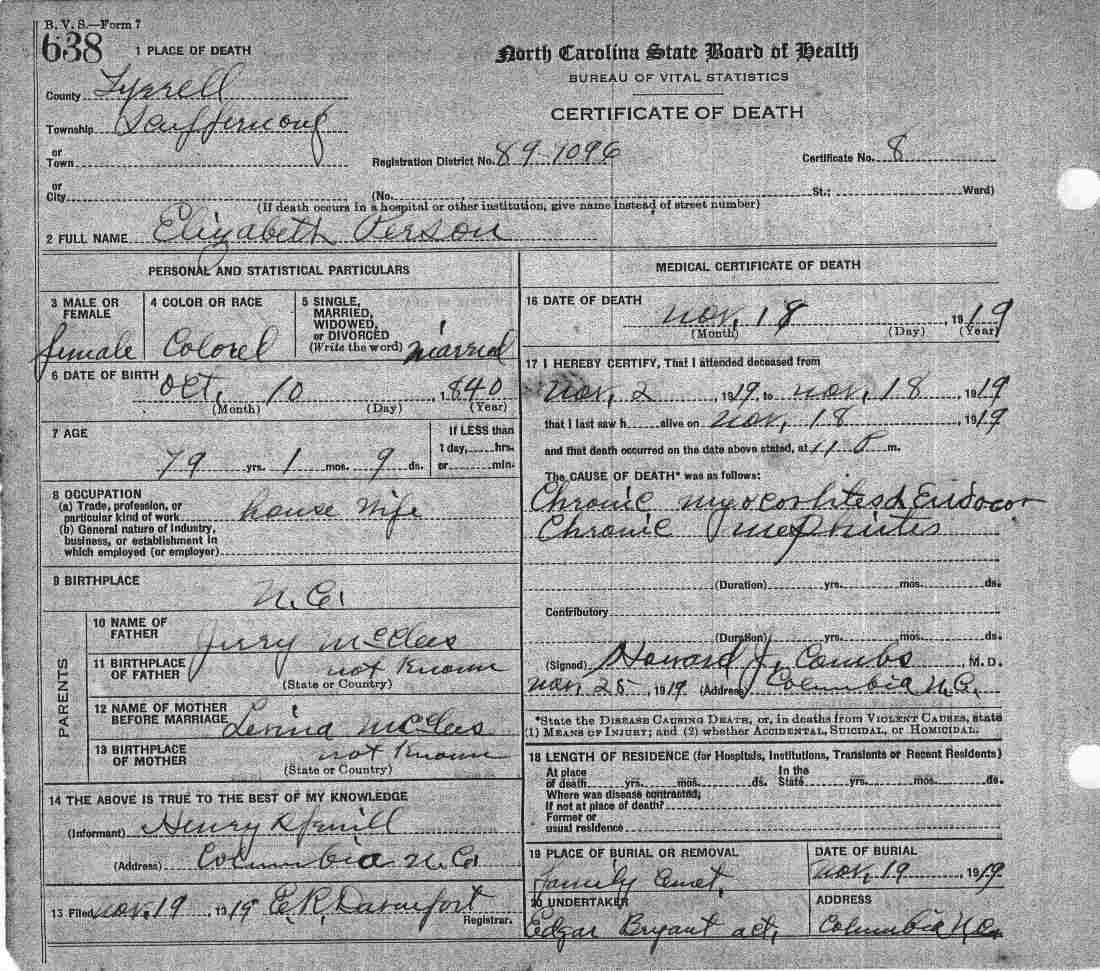 B. V. S.—Form 7
638
1 PLACE OF DEATH
North Carolina State Board of Health
BUREAU OF VITAL STATISTICS
CERTIFICATE OF DEATH
County Tyrrell
Township Scuppernong
or Town
Registration District No. 89-1096
Certificate No. 8
or City
(No. St.; Ward)
(If death occurs in a hospital or other institution, give name instead of street number)
2 FULL NAME Elizabeth Person
PERSONAL AND STATISTICAL PARTICULARS
3 MALE OR FEMALE
female
4 COLOR OR RACE
Colored
5 SINGLE, MARRIED, WIDOWED, or DIVORCED (Write the word)
married
6 DATE OF BIRTH
Oct, 10 1840
(Month) (Day) (Year)
7 AGE
79 yrs. 1 mos. 9 ds.
If LESS than
1 day, hrs.
or min.
8 OCCUPATION
(a) Trade, profession, or
particular kind of work house wife
(b) General nature of industry,
business, or establishment in
which employed (or employer)
9 BIRTHPLACE
N.C.
PARENTS
10 NAME OF FATHER
Jerry McClees
11 BIRTHPLACE OF FATHER
not Known
(State or Country)
12 NAME OF MOTHER BEFORE MARRIAGE
Levina McClees
13 BIRTHPLACE OF MOTHER
not Known
(State or Country)
14 THE ABOVE IS TRUE TO THE BEST OF MY KNOWLEDGE
(Informant) Henry
(Address) Columbia N.C.
13 Filed nov. 19 1919 E.R. Davenport
Registrar.
MEDICAL CERTIFICATE OF DEATH
16 DATE OF DEATH
nov, 18 1919
(Month) (Day) (Year)
17 I HEREBY CERTIFY, That I attended deceased from
nov, 2 1919, to nov, 18 1919
that I last saw h alive on nov, 18 1919
and that death occurred on the date above stated, at 11 P m.
The CAUSE OF DEATH* was as follows:
Chronic
Chronic
(Duration) yrs. mos. ds.
Contributory
(Duration) yrs. mos. ds.
(Signed) Howard J. Combs M.D.
nov, 25 1919 (Address) Columbia N.C.
*State the DISEASE CAUSING DEATH, or, in deaths from VIOLENT CAUSES, state
(1) MEANS OF INJURY; and (2) whether ACCIDENTAL, SUICIDAL, or HOMICIDAL.
18 LENGTH OF RESIDENCE (for Hospitals, Institutions, Transients or Recent Residents)
At place of death yrs. mos. ds. In the State yrs. mos. ds.
Where was disease contracted,
If not at place of death?
Former or
usual residence
19 PLACE OF BURIAL OR REMOVAL
family Cemet.
DATE OF BURIAL
nov, 19 1919
20 UNDERTAKER
Edgar Bryant act,
ADDRESS
Columbia N.C.